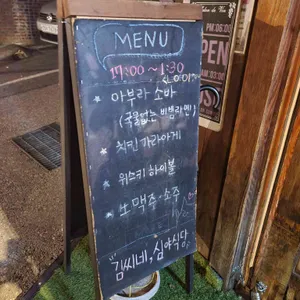 MENU
17:00~1:30
아부라 소바
(국물없는 비빔라멘)
치킨 가라아게
위스키 하이볼
맥주·소주
"김씨네, 심야식당"
OPEN
PM